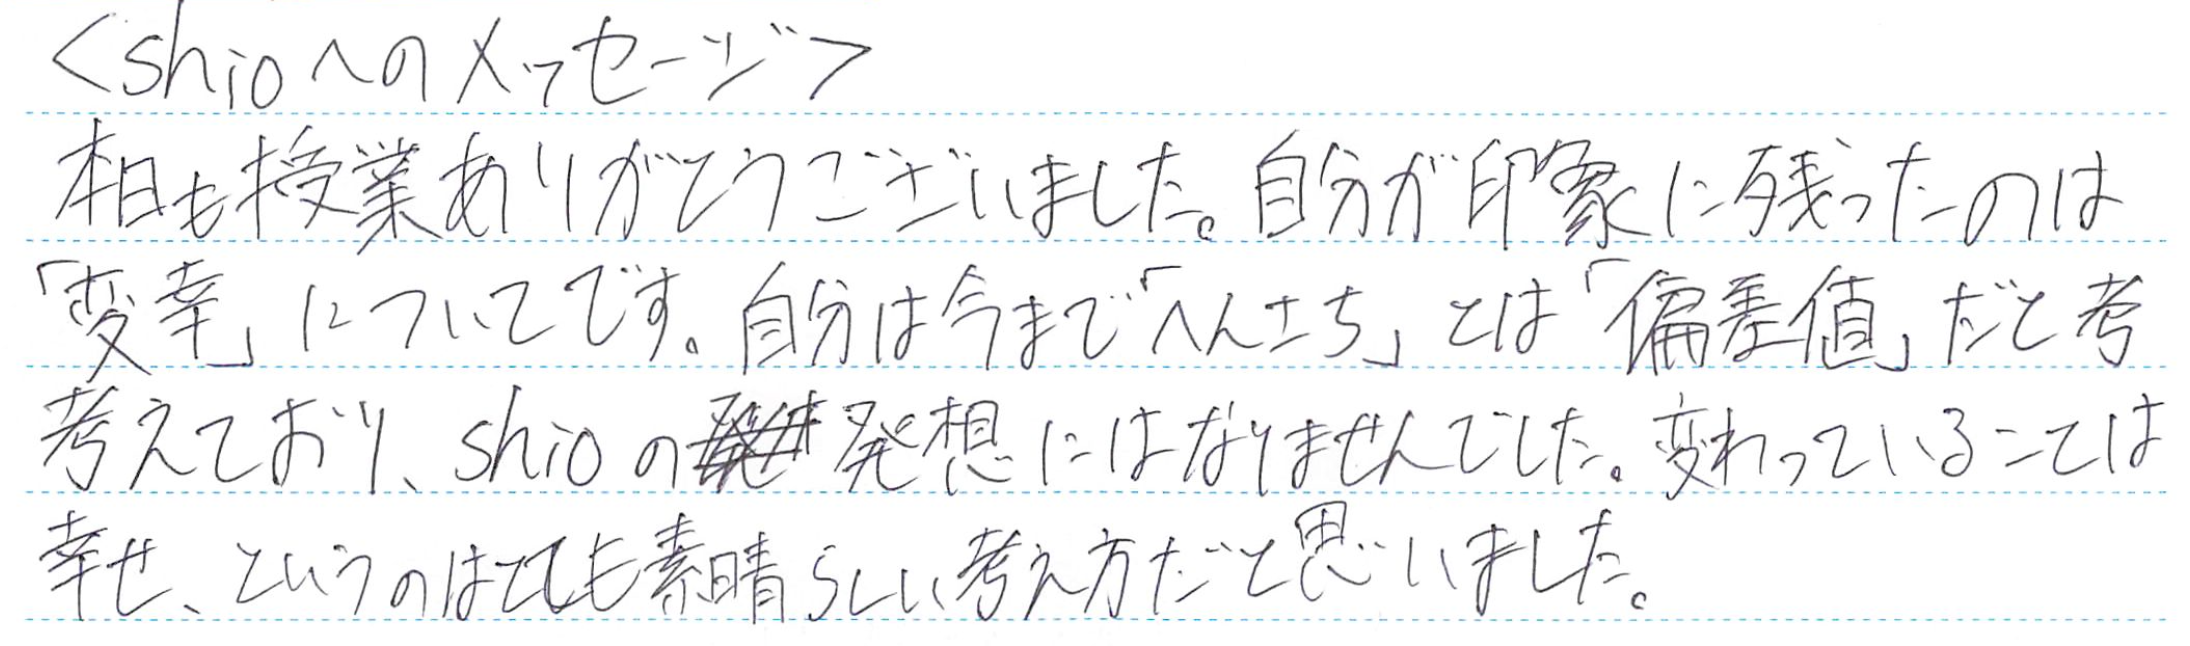 <shioへのメッセージ>
本日も授業ありがとうございました。自分が印象に残ったのは
「変幸」についてです。自分は今まで「へんさち」とは「偏差値」だと考
考えており、shioの発想にはなりませんでした。変わっていることは
幸せ、というのはとても素晴らしい考え方だと思いました。